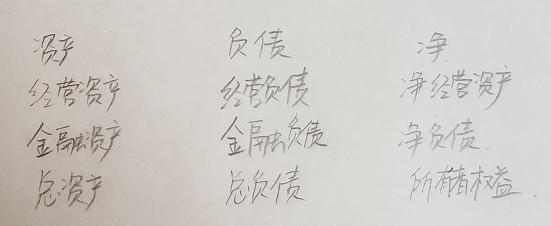 资产 负债 净
经营资产 经营负债 净经营资产
金融资产 金融负债 净负债
总资产 总负债 所有者权益